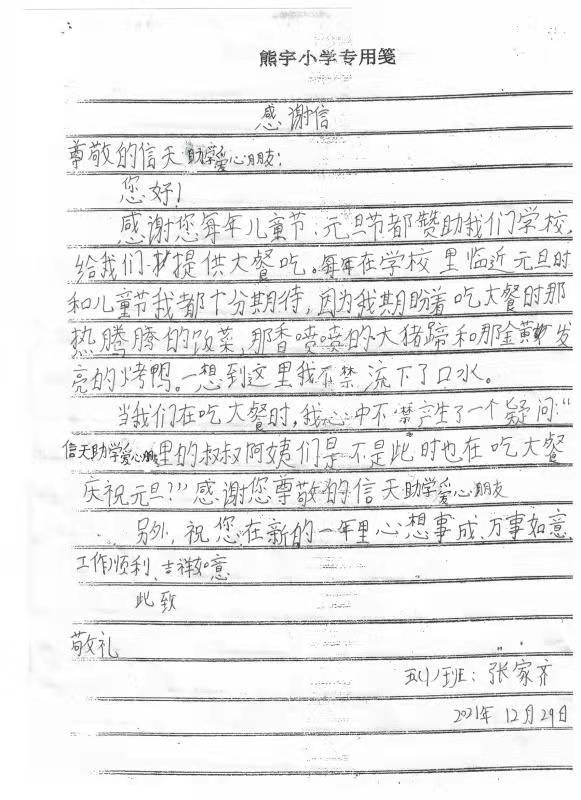 熊宇小学专用笺
感谢信
尊敬的信天助学爱心朋友:
您好!
感谢您每年儿童节、元旦节都赞助我们学校,
给我们提供大餐吃。每年在学校里临近元旦时
和儿童节我都十分期待,因为我期盼着吃大餐时那
热腾腾的饭菜,那香喷喷的大猪蹄和那金黄发
亮的烤鸭。一想到这里我不禁流下了口水。
当我们在吃大餐时,我心中不禁产生了一个疑问:“
信天助学爱心朋友里的叔叔阿姨们是不是此时也在吃大餐
庆祝元旦?”感谢您尊敬的信天助学爱心朋友
另外,祝您在新的一年里心想事成、万事如意
工作顺利、吉祥如意
此致
敬礼
五(1)班:张家齐
2021年12月29日